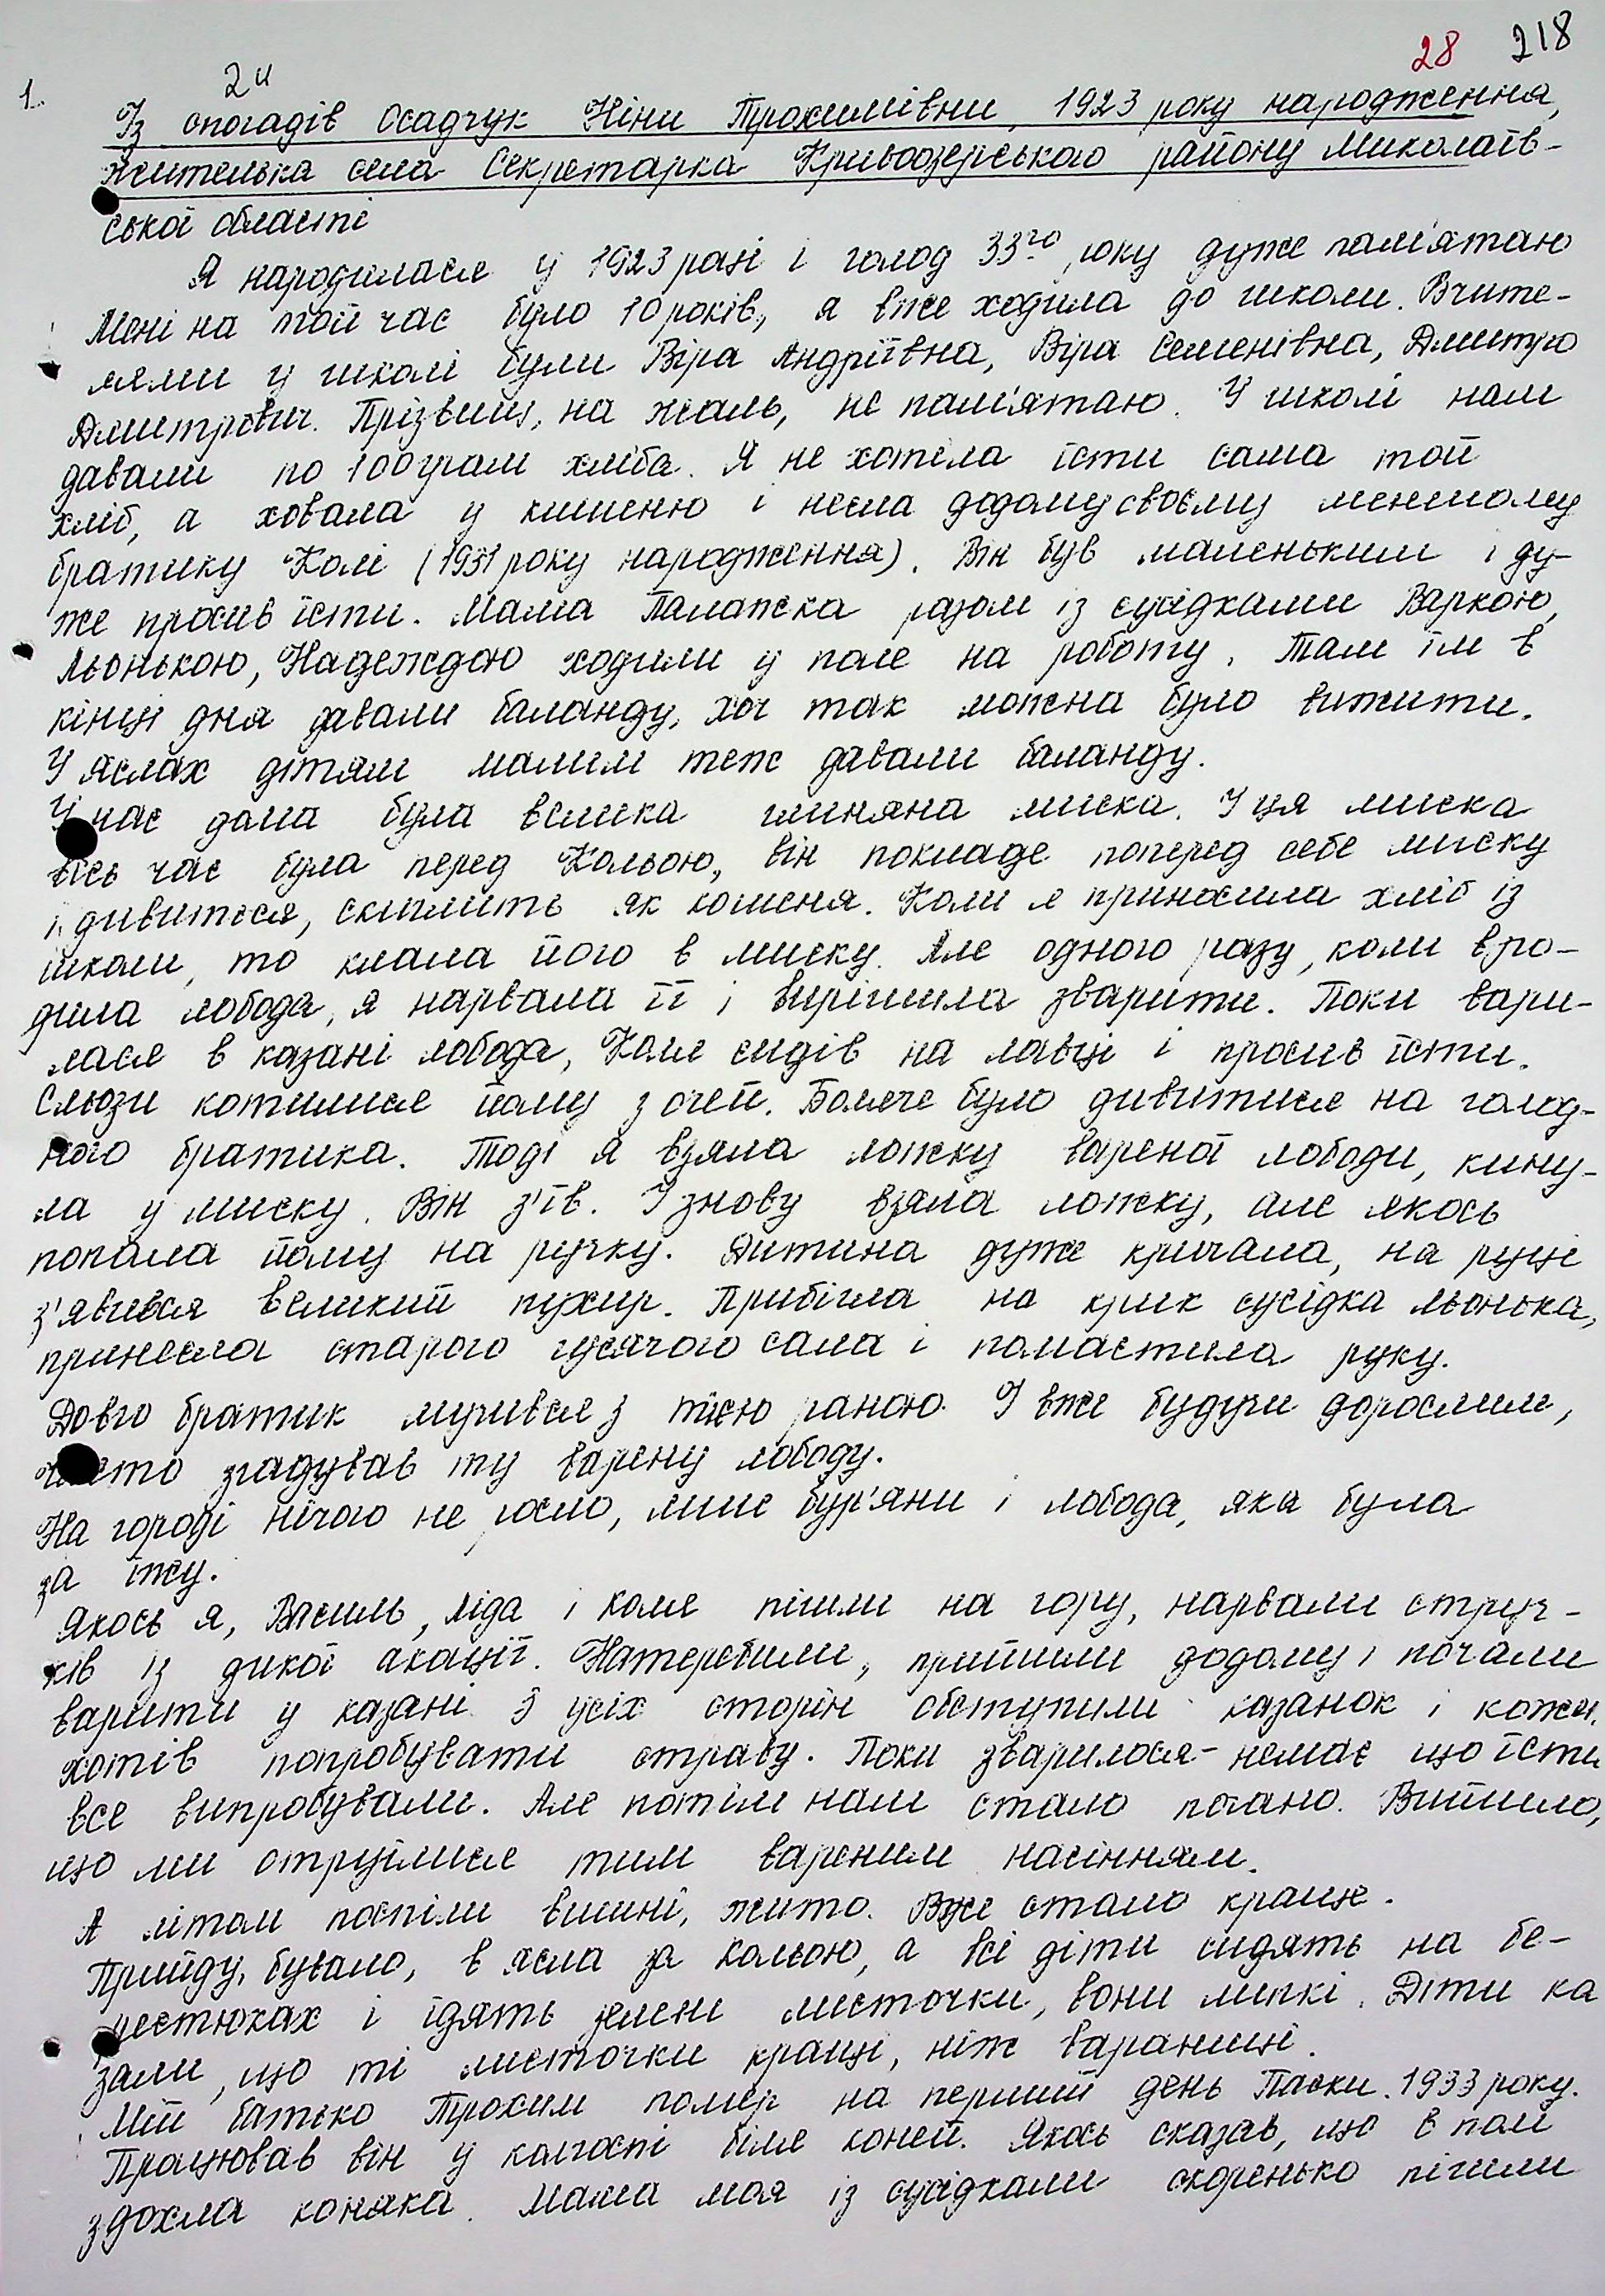 28 218
1. 24
Із спогадів Осадчук Ніни Трохимівни, 1923 року народження,
жителька села Секретарка Кривоозерського району Миколаїв-
ської області
Я народилася у 1923 році і голод 33го року дуже пам'ятаю
Мені на той час було 10 років, я вже ходила до школи. Вчите-
лями у школі були Віра Андріївна, Віра Семенівна, Дмитро
Дмитрович. Прізвищ, на жаль, не пам'ятаю. У школі нам
давали по 100 грам хліба. Я не хотіла їсти сама той
хліб, а ховала у кишеню і несла додому своєму меншому
братику Колі (1931 року народження). Він був маленьким і ду-
же просив їсти. Мама Палажка разом із сусідками Варкою,
Льонькою, Надеждою ходили у поле на роботу. Там їм в
кінці дня давали баланду, хоч так можна було вижити.
У яслах дітям малим теж давали баланду.
У нас дома була велика глиняна миска. І ця миска
весь час була перед Кольою, він покладе поперед себе миску
і дивиться, скиглить як кошеня. Коли я приносила хліб із
школи, то клала його в миску. Але одного разу, коли вро-
дила лобода, я нарвала її і вирішила зварити. Поки вари-
лася в казані лобода, Коля сидів на лавці і просив їсти.
Сльози котилися йому з очей. Боляче було дивитися на голод-
ного братика. Тоді я взяла ложку вареної лободи, кину-
ла у миску. Він з'їв. І знову взяла ложку, але якось
попала йому на ручку. Дитина дуже кричала, на руці
з'явився великий пухир. Прибігла на крик сусідка Льонька,
принесла старого гусячого сала і помастила руку.
Довго братик мучився з тією раною. І вже будучи дорослим,
часто згадував ту варену лободу.
На городі нічого не росло, лише бур'яни і лобода, яка була
за їжу.
Якось я, Василь, Ліда і Коля пішли на гору, нарвали струч-
ків із дикої акації. Натеребили, прийшли додому і почали
варити у казані. З усіх сторін обступили казанок і кожен
хотів попробувати страву. Поки зварилося - немає що їсти
все випробували. Але потім нам стало погано. Вийшло,
що ми отруїлися тим вареним насінням.
А літом поспіли вишні, жито. Вже стало краще.
Прийду, бувало, в ясла за Кольою, а всі діти сидять на бе-
рестюках і їдять зелені листочки, вони липкі. Діти ка
зали, що ті листочки кращі, ніж вараниці.
Мій батько Трохим помер на перший день Паски. 1933 року.
Працював він у колгоспі біля коней. Якось сказав, що в полі
здохла коняка. Мама моя із сусідками скоренько пішли